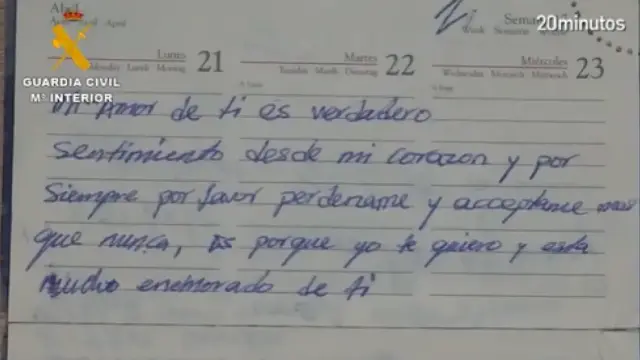 Abril
April
20minutos
GUARDIA CIVIL
Mº INTERIOR
Lunes
Monday Lundi Montag 21
Martes
Tuesday Mardi Dienstag 22
Miércoles
Wednesday Mercredi Mittwoch 23
Mi Amor de ti es verdadero
sentimiento desde mi corazon y por
siempre por favor perdename y acceptame mas
que nunca, Es porque yo te quiero y esta
mucho enemorado de ti